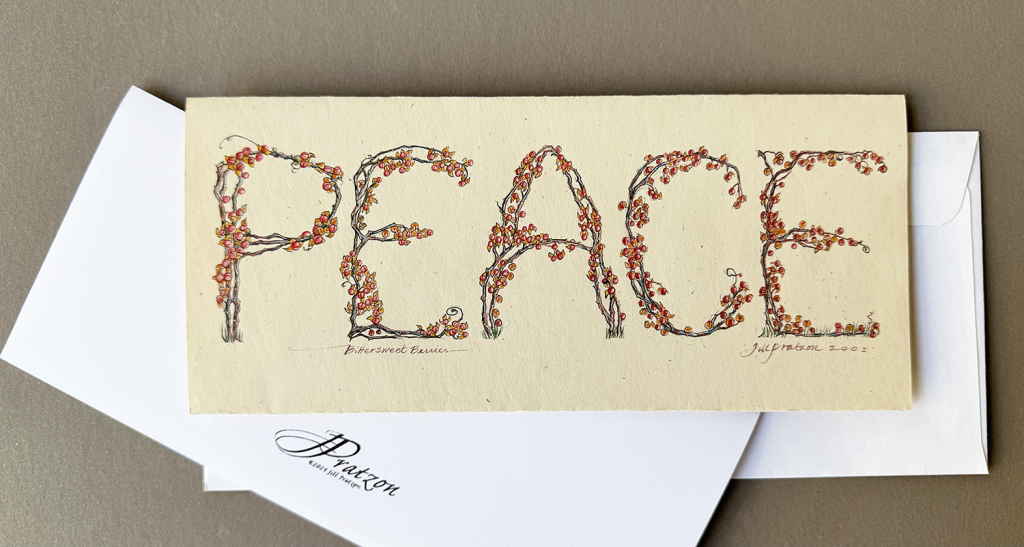 PEACE
Bittersweet Berries
Jill Pratzon 2002
JPratzon
©2024 Jill Pratzon